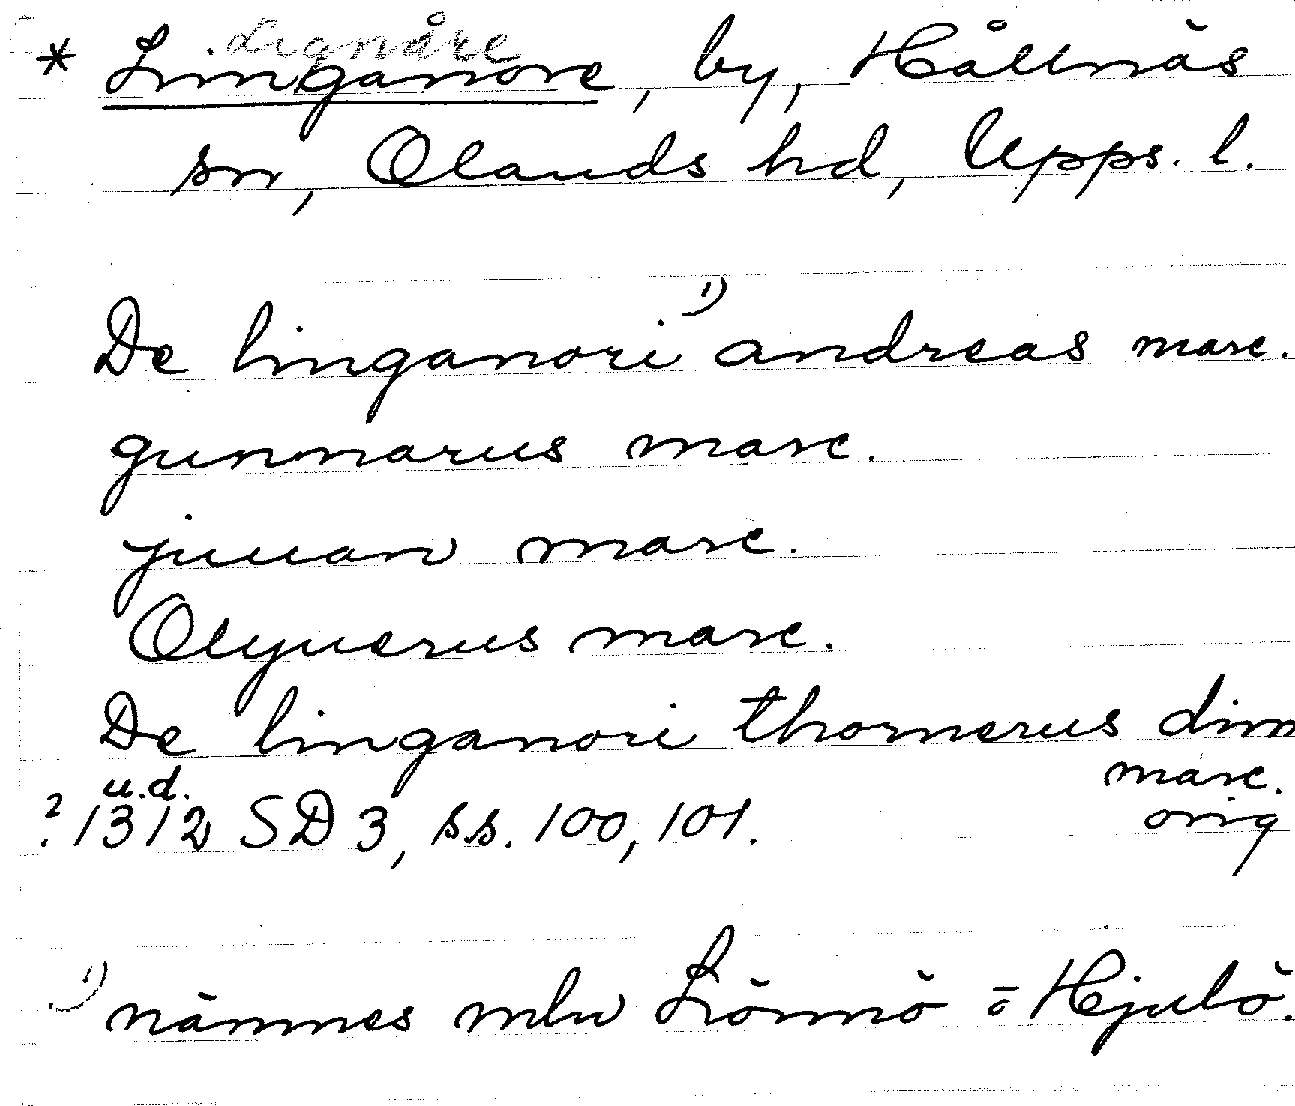 Lignåre
* Linganore, by, Hållnäs
sn, Olands hd, Upps. l.
De linganori ¹⁾ andreas marc.
gunmarus marc.
juuan marc.
Olyuerus marc.
De linganori thornerus dim
marc.
u.d.
? 1312 SD 3, ss. 100, 101.
orig
¹⁾ nämnes mln Lönnö o Hjulö.